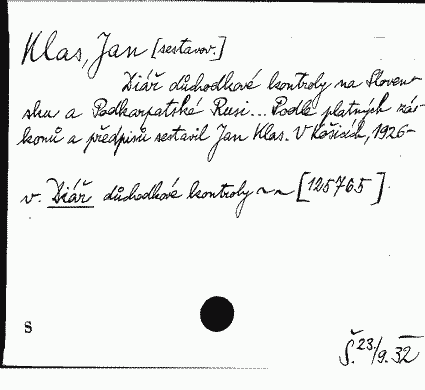 Klas, Jan [sestavov.]
Diář důchodkové kontroly na Sloven-
sku a Podkarpatské Rusi... Podle platných zá-
konů a předpisů sestavil Jan Klas. V Košicích, 1926-
v. Diář důchodkové kontroly ~~ [125765]
S
Š. 23/9. 32